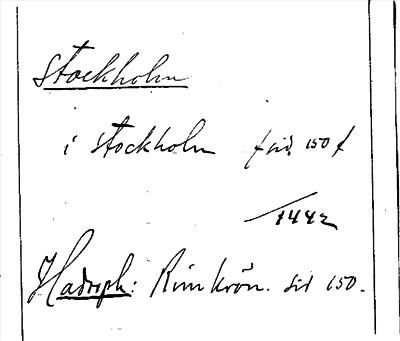 Stockholm
i Stockholm sid. 150 f
1442
Hadorph: Rimkrön. sid 150.